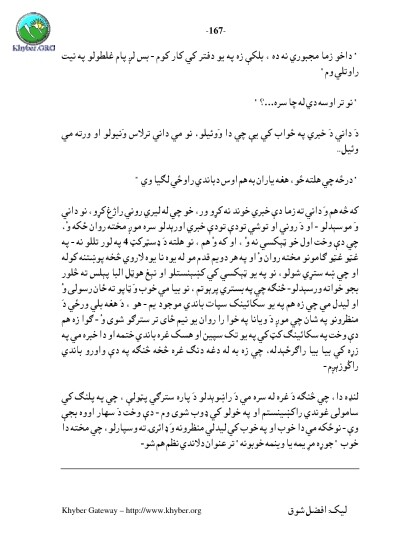 Khyber.ORG
-167-
" داخو زما مجبوري نه ده ، بلکې زه په يو دفتر کې کار کوم - بس لږ پام غلطولو په نيت
راوتلې وم "
" نو تر اوسه دې له چا سره...؟ "
دَ دانې دَ خبرې په ځواب کې يې چې دا وَئيلو ، نو مې دانې ترلاس وَنيولو او ورته مې
وئيل..
" درځه چې هلته ځو ، هغه ياران به هم اوس دباندې راوځي لګيا وي "
که څه هم وَ دانې ته زما دې خبرې خوند نه کړو ور، خو چې له ليرې روني راږغ کړو ، نو دانې
وَ موسېدلو - او دَ روني او توشي تودې تودې خبرې اورېدلو سره موږ مخته روان شُوَ
چې دې وخت اول خو ټيکسي نه وُ ، او که وُ هم ، نو هلته دَ ډسټرکټ 4 په لور تللو نه - په
غټو غټو ګامونو مخته روان وُ او په هر دويم قدم مو له يوه نا يوه لاروي څخه پوښتنه کوله
او چې ښه ستړي شولو ، نو په يو ټيکسي کې کښېنستلو او نېغ هوټل البا پېلس ته څلور
بجو خواته ورسېدلو- څنګه چې په بستري پرېوتم ، نو بيا مې خوب وَ ټاپو ته ځان رسولی وُ
او ليدل مې چې زه هم په يو سکائينګ سپاټ باندې موجود يم - هو ، دَ هغه بلې ورځې دَ
منظرونو په شان چې موږ دَ ويانا په خوا را روان يو نيم ځای تر سترګو شوي وُ - ګوا زه هم
دې وخت په سکائينګ کټ کې په يو تک سپين او هسک غره باندې ختمه او دا خېره مې په
زړه کې بيا بيا راګرځېدله، چې زه به له دغه دنګ غره څخه څنګه په دې واورو باندې
راڅوئېږم-
لنډه دا ، چې څنګه دَ غره له سره مې دَ راښوېدلو دَ پاره سترګې پټولې ، چې په پلنګ کې
ساموليغوندي راکښېنستم او په خولو کې ډوب شوی وم - دې وخت دَ سهار اووه بجې
وې - نو ځکه مې دا خوب او په خوب کې ليدلې منظرونه وَ ډائرۍ ته وسپارلو ، چې مخته دا
خوب "جوړه مړيمه يا وينمه خوبونه" تر عنوان دلاندې نظم هم شو-
Khyber Gateway – http://www.khyber.org
ليک: افضل شوق